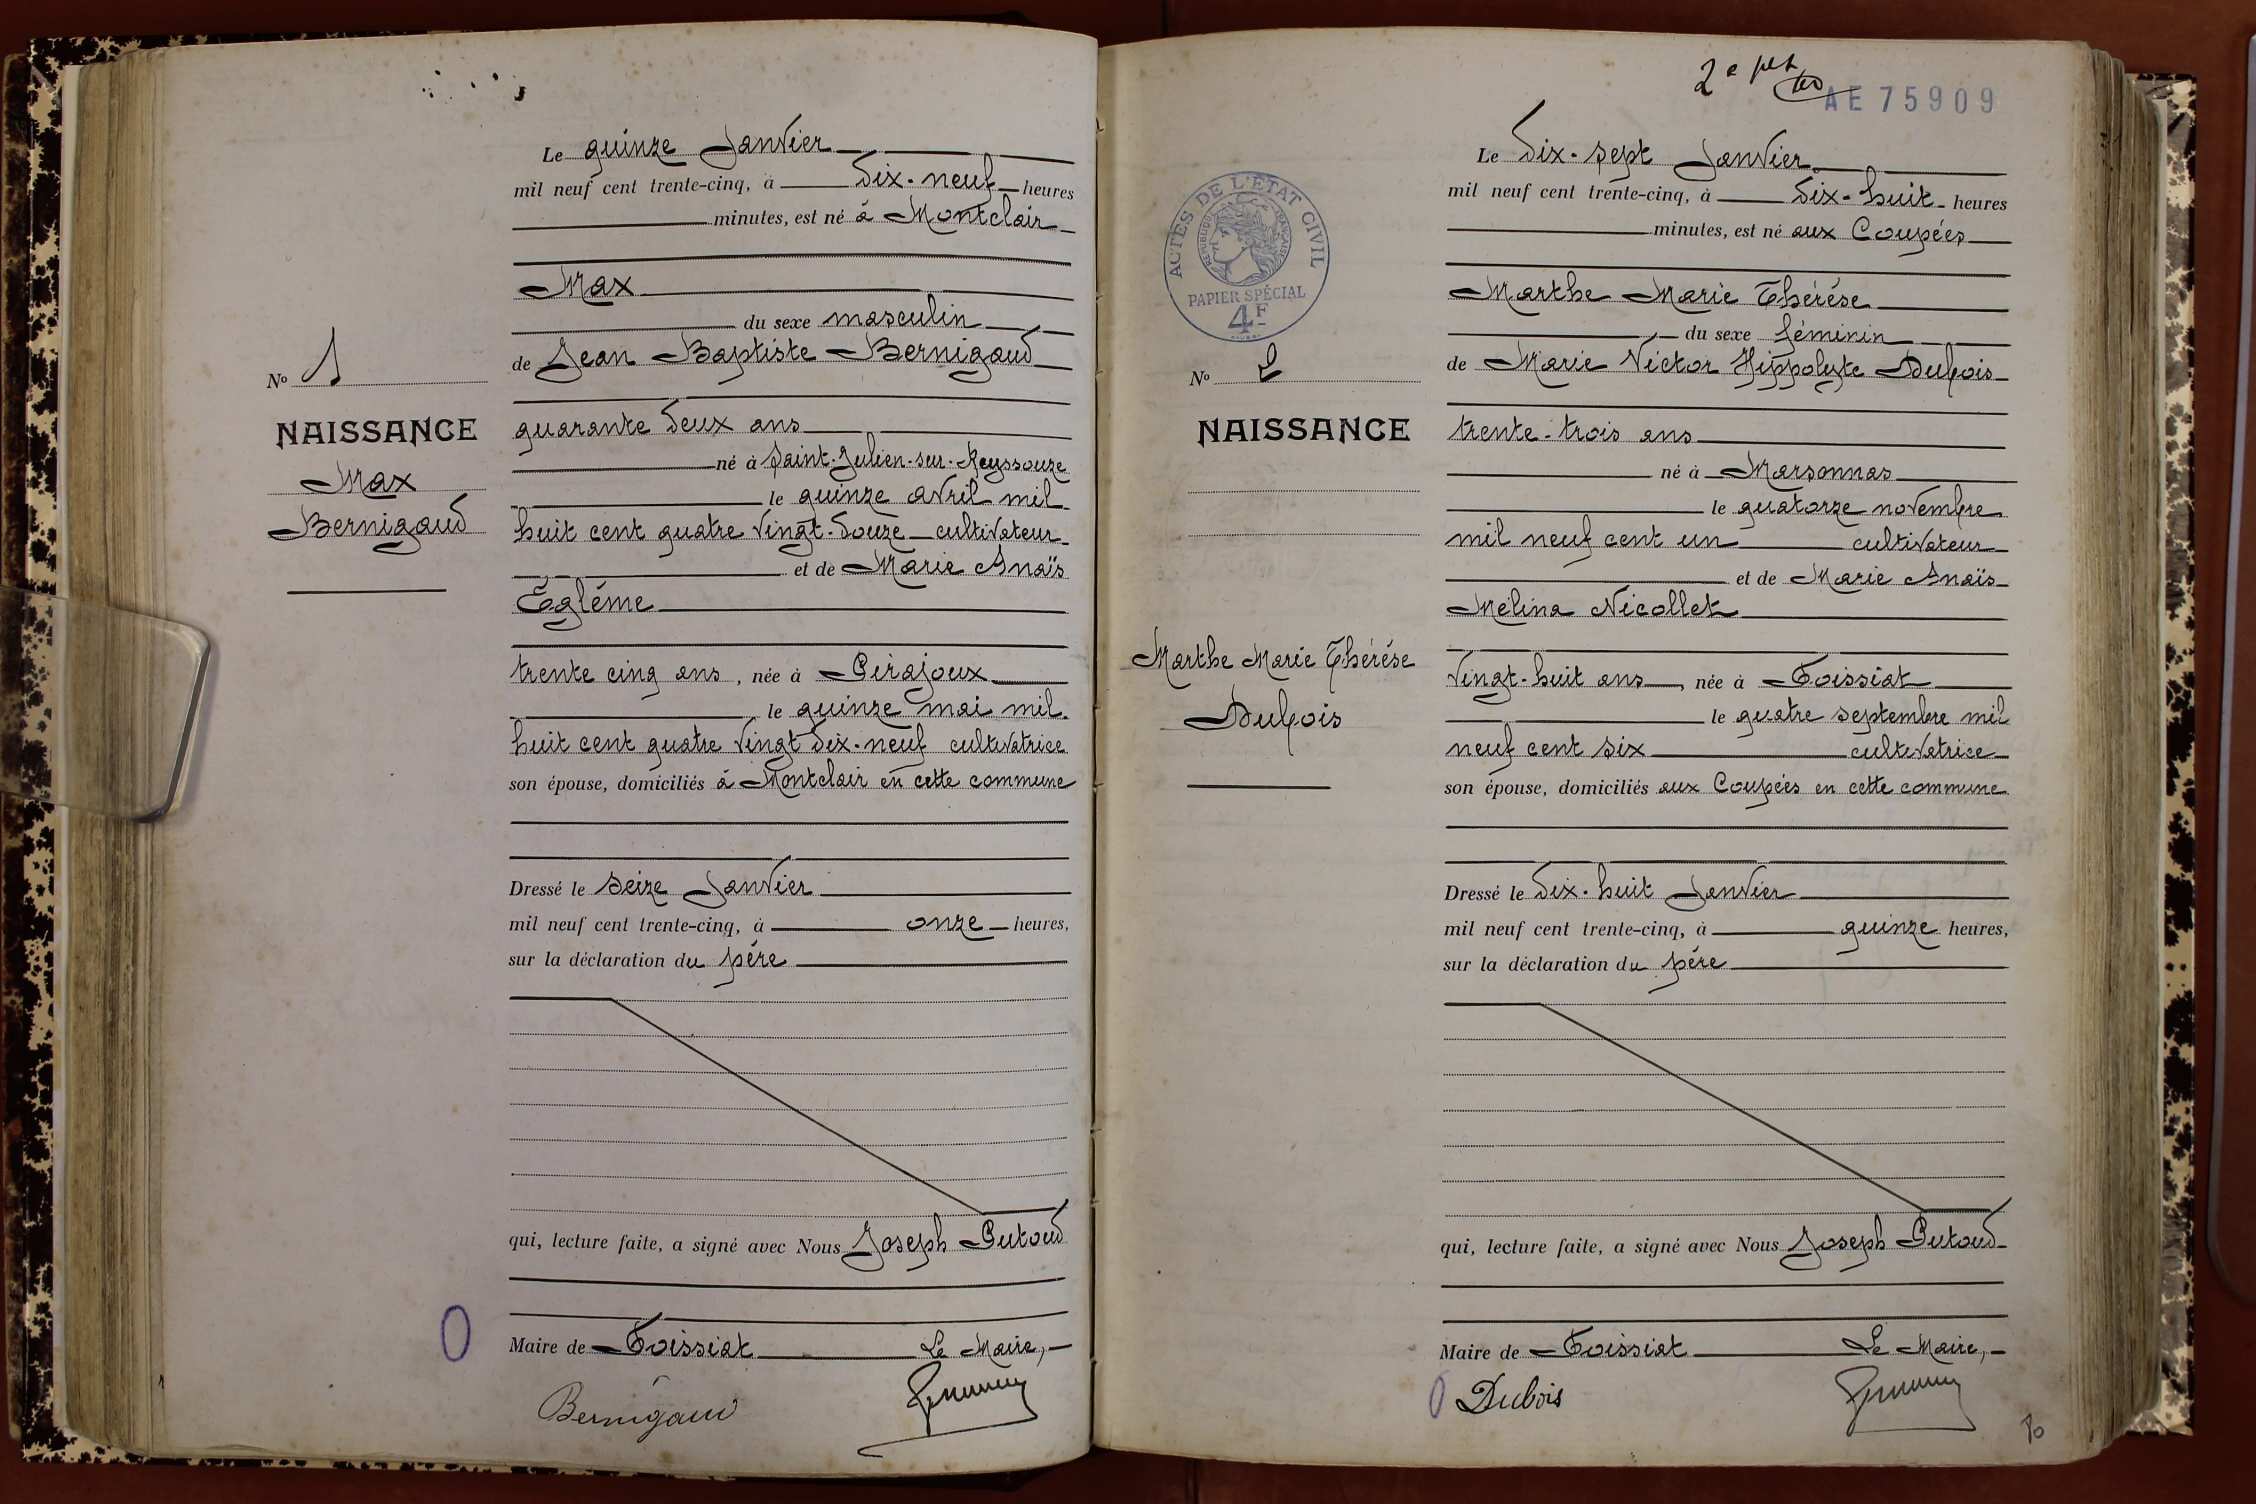 Le quinze Janvier
mil neuf cent trente-cinq, à dix-neuf heures
minutes, est né à Montclair
Max
du sexe masculin
de Jean Baptiste Bernigaud
quarante deux ans
né à Saint-Julien-sur-Reyssouze
le quinze avril mil
huit cent quatre vingt-douze cultivateur
et de Marie Anaïs
Egléme
trente cinq ans, née à Pirajoux
le quinze mai mil
huit cent quatre vingt dix-neuf cultivatrice
son épouse, domiciliés à Montclair en cette commune
Dressé le seize Janvier
mil neuf cent trente-cinq, à onze heures,
sur la déclaration du père
qui, lecture faite, a signé avec Nous Joseph Putoud
Maire de Foissiat Le Maire,
Bernigaud
No 1
NAISSANCE
Max
Bernigaud
2e
AE 75909
ACTES DE L'ÉTAT CIVIL
RÉPUBLIQUE FRANÇAISE
PAPIER SPÉCIAL
4F
No 2
NAISSANCE
Marthe Marie Thérèse
Dubois
Le dix-sept Janvier
mil neuf cent trente-cinq, à dix-huit heures
minutes, est né aux Coupées
Marthe Marie Thérèse
du sexe féminin
de Marie Victor Hippolyte Dubois
trente-trois ans
né à Marsonnas
le quatorze novembre
mil neuf cent un cultivateur
et de Marie Anaïs
Mélina Nicollet
vingt-huit ans, née à Foissiat
le quatre septembre mil
neuf cent six cultivatrice
son épouse, domiciliés aux Coupées en cette commune
Dressé le dix-huit Janvier
mil neuf cent trente-cinq, à quinze heures,
sur la déclaration du père
qui, lecture faite, a signé avec Nous Joseph Putoud
Maire de Foissiat Le Maire,
Dubois